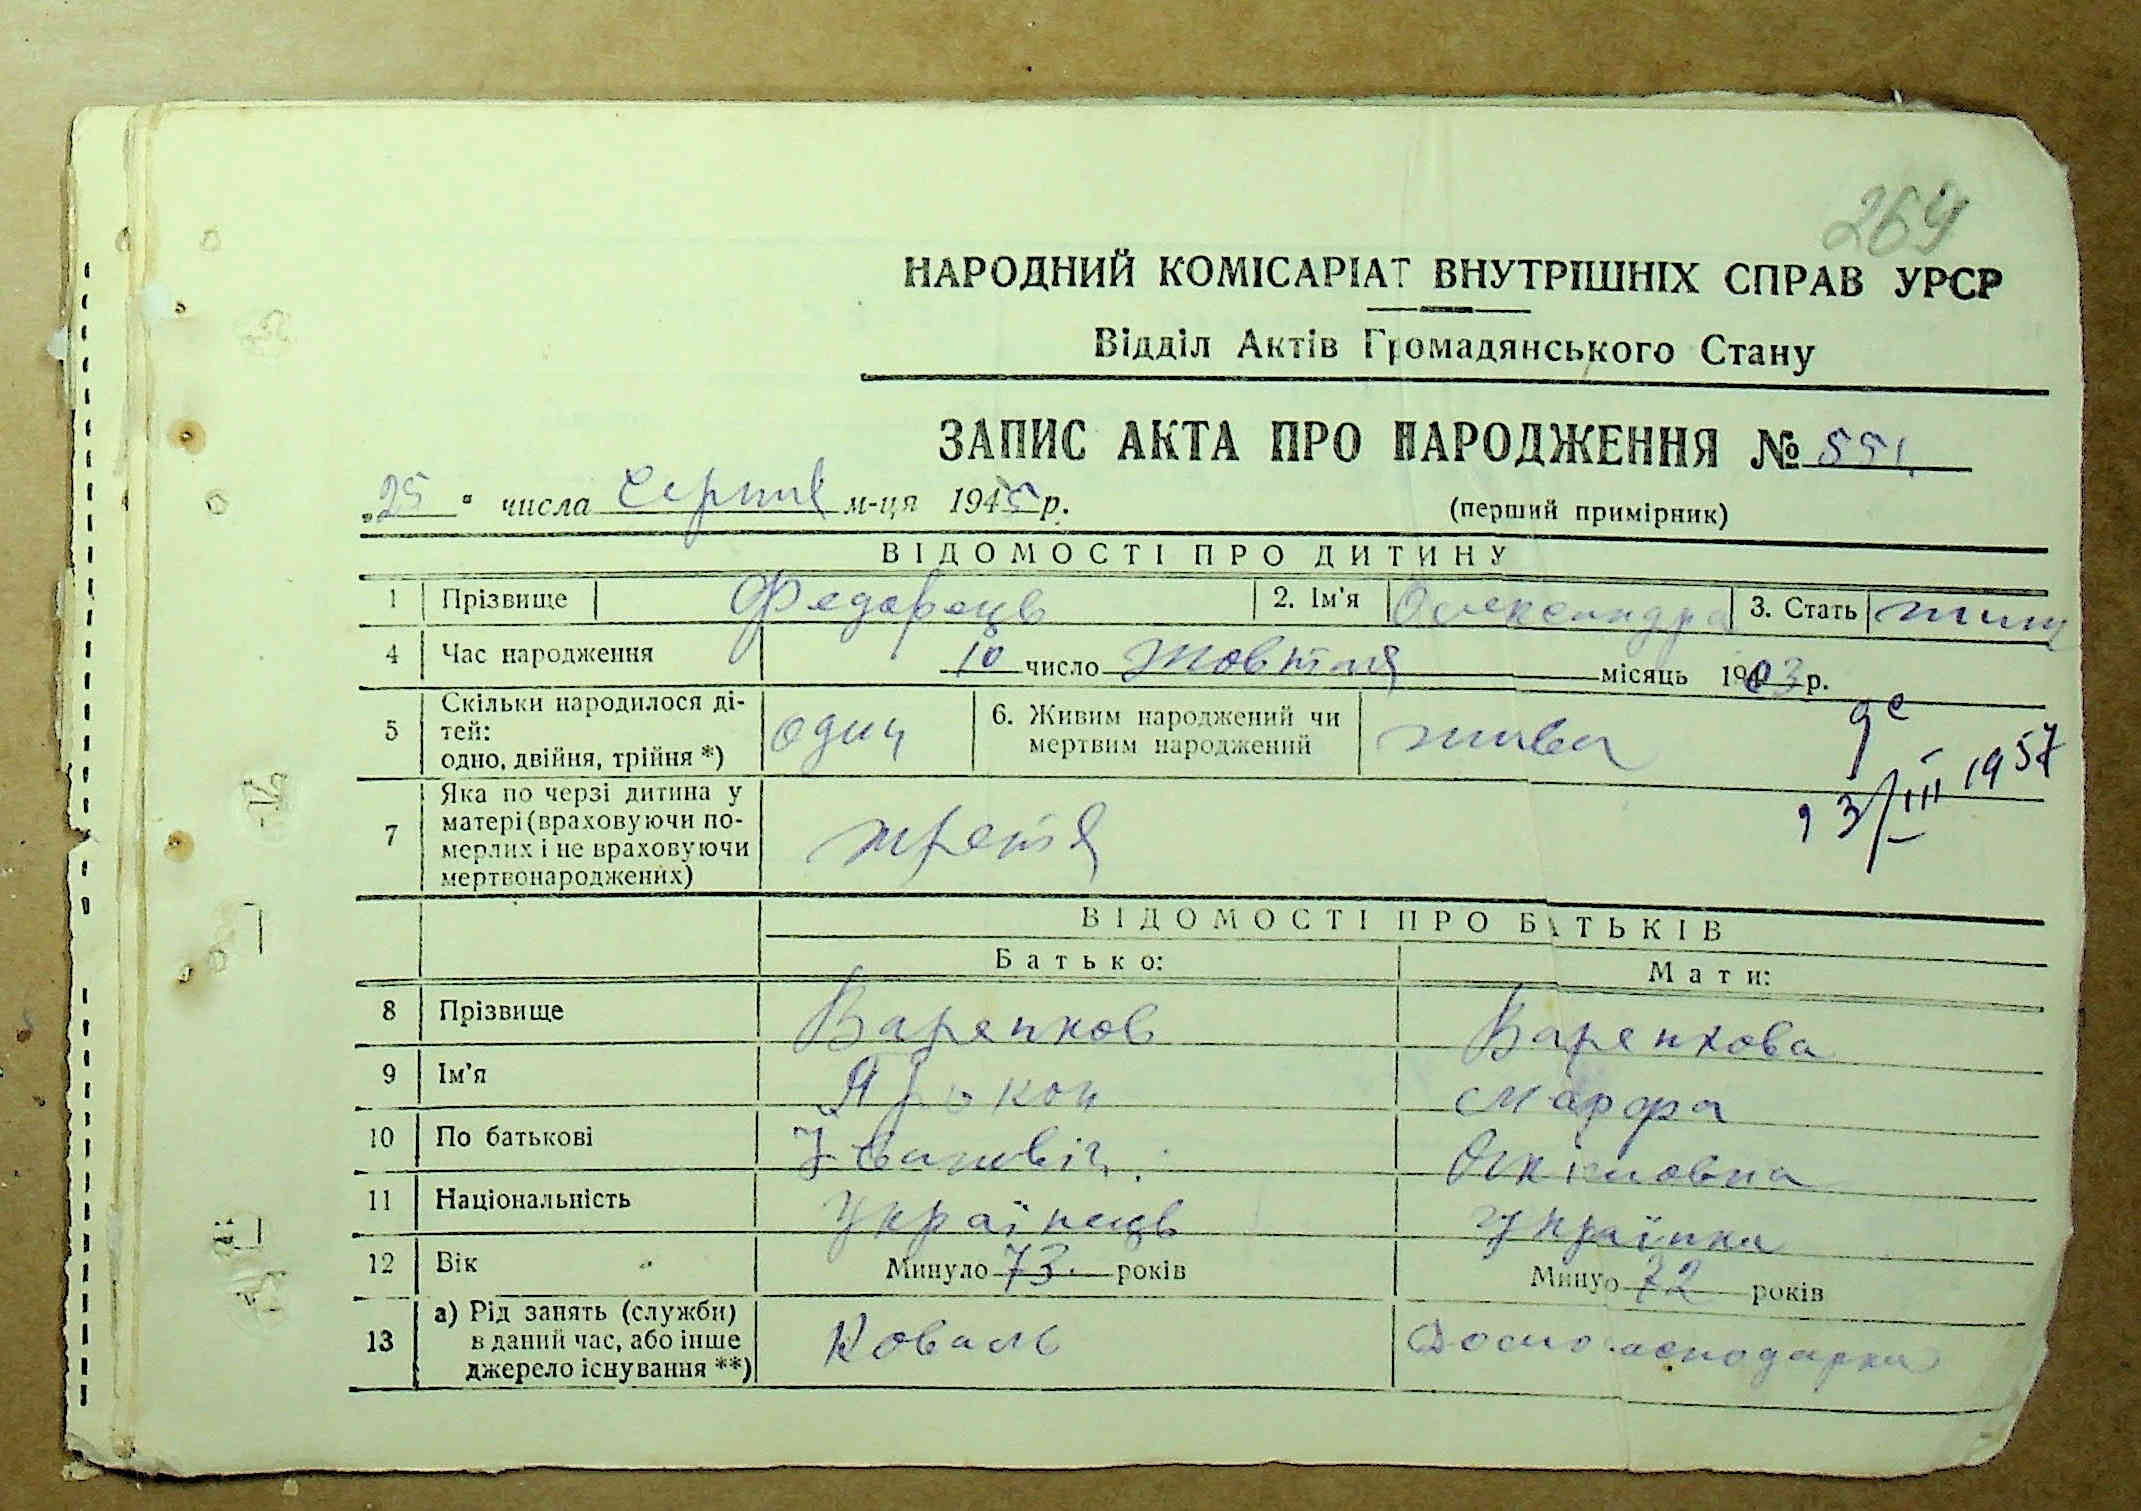 264
НАРОДНИЙ КОМІСАРІАТ ВНУТРІШНІХ СПРАВ УРСР
Відділ Актів Громадянського Стану
ЗАПИС АКТА ПРО НАРОДЖЕННЯ № 551
„25" числа Серпня м-ця 1945 р. (перший примірник)
ВІДОМОСТІ ПРО ДИТИНУ
1 Прізвище Федорець 2. Ім'я Олександра 3. Стать жін
4 Час народження 10 число Жовтня місяць 1903 р.
5 Скільки народилося ді-
тей:
одно, двійня, трійня *) один 6. Живим народжений чи
мертвим народжений жива
13/III 1957
7 Яка по черзі дитина у
матері (враховуючи по-
мерлих і не враховуючи
мертвонароджених) третя
ВІДОМОСТІ ПРО БАТЬКІВ
Батько: Мати:
8 Прізвище Варенков Варенкова
9 Ім'я Марфа
10 По батькові Іванович
11 Національність Українець Українка
12 Вік Минуло 73 років Минуо 72 років
13 а) Рід занять (служби)
в даний час, або інше
джерело існування **) Коваль Домогосподарка